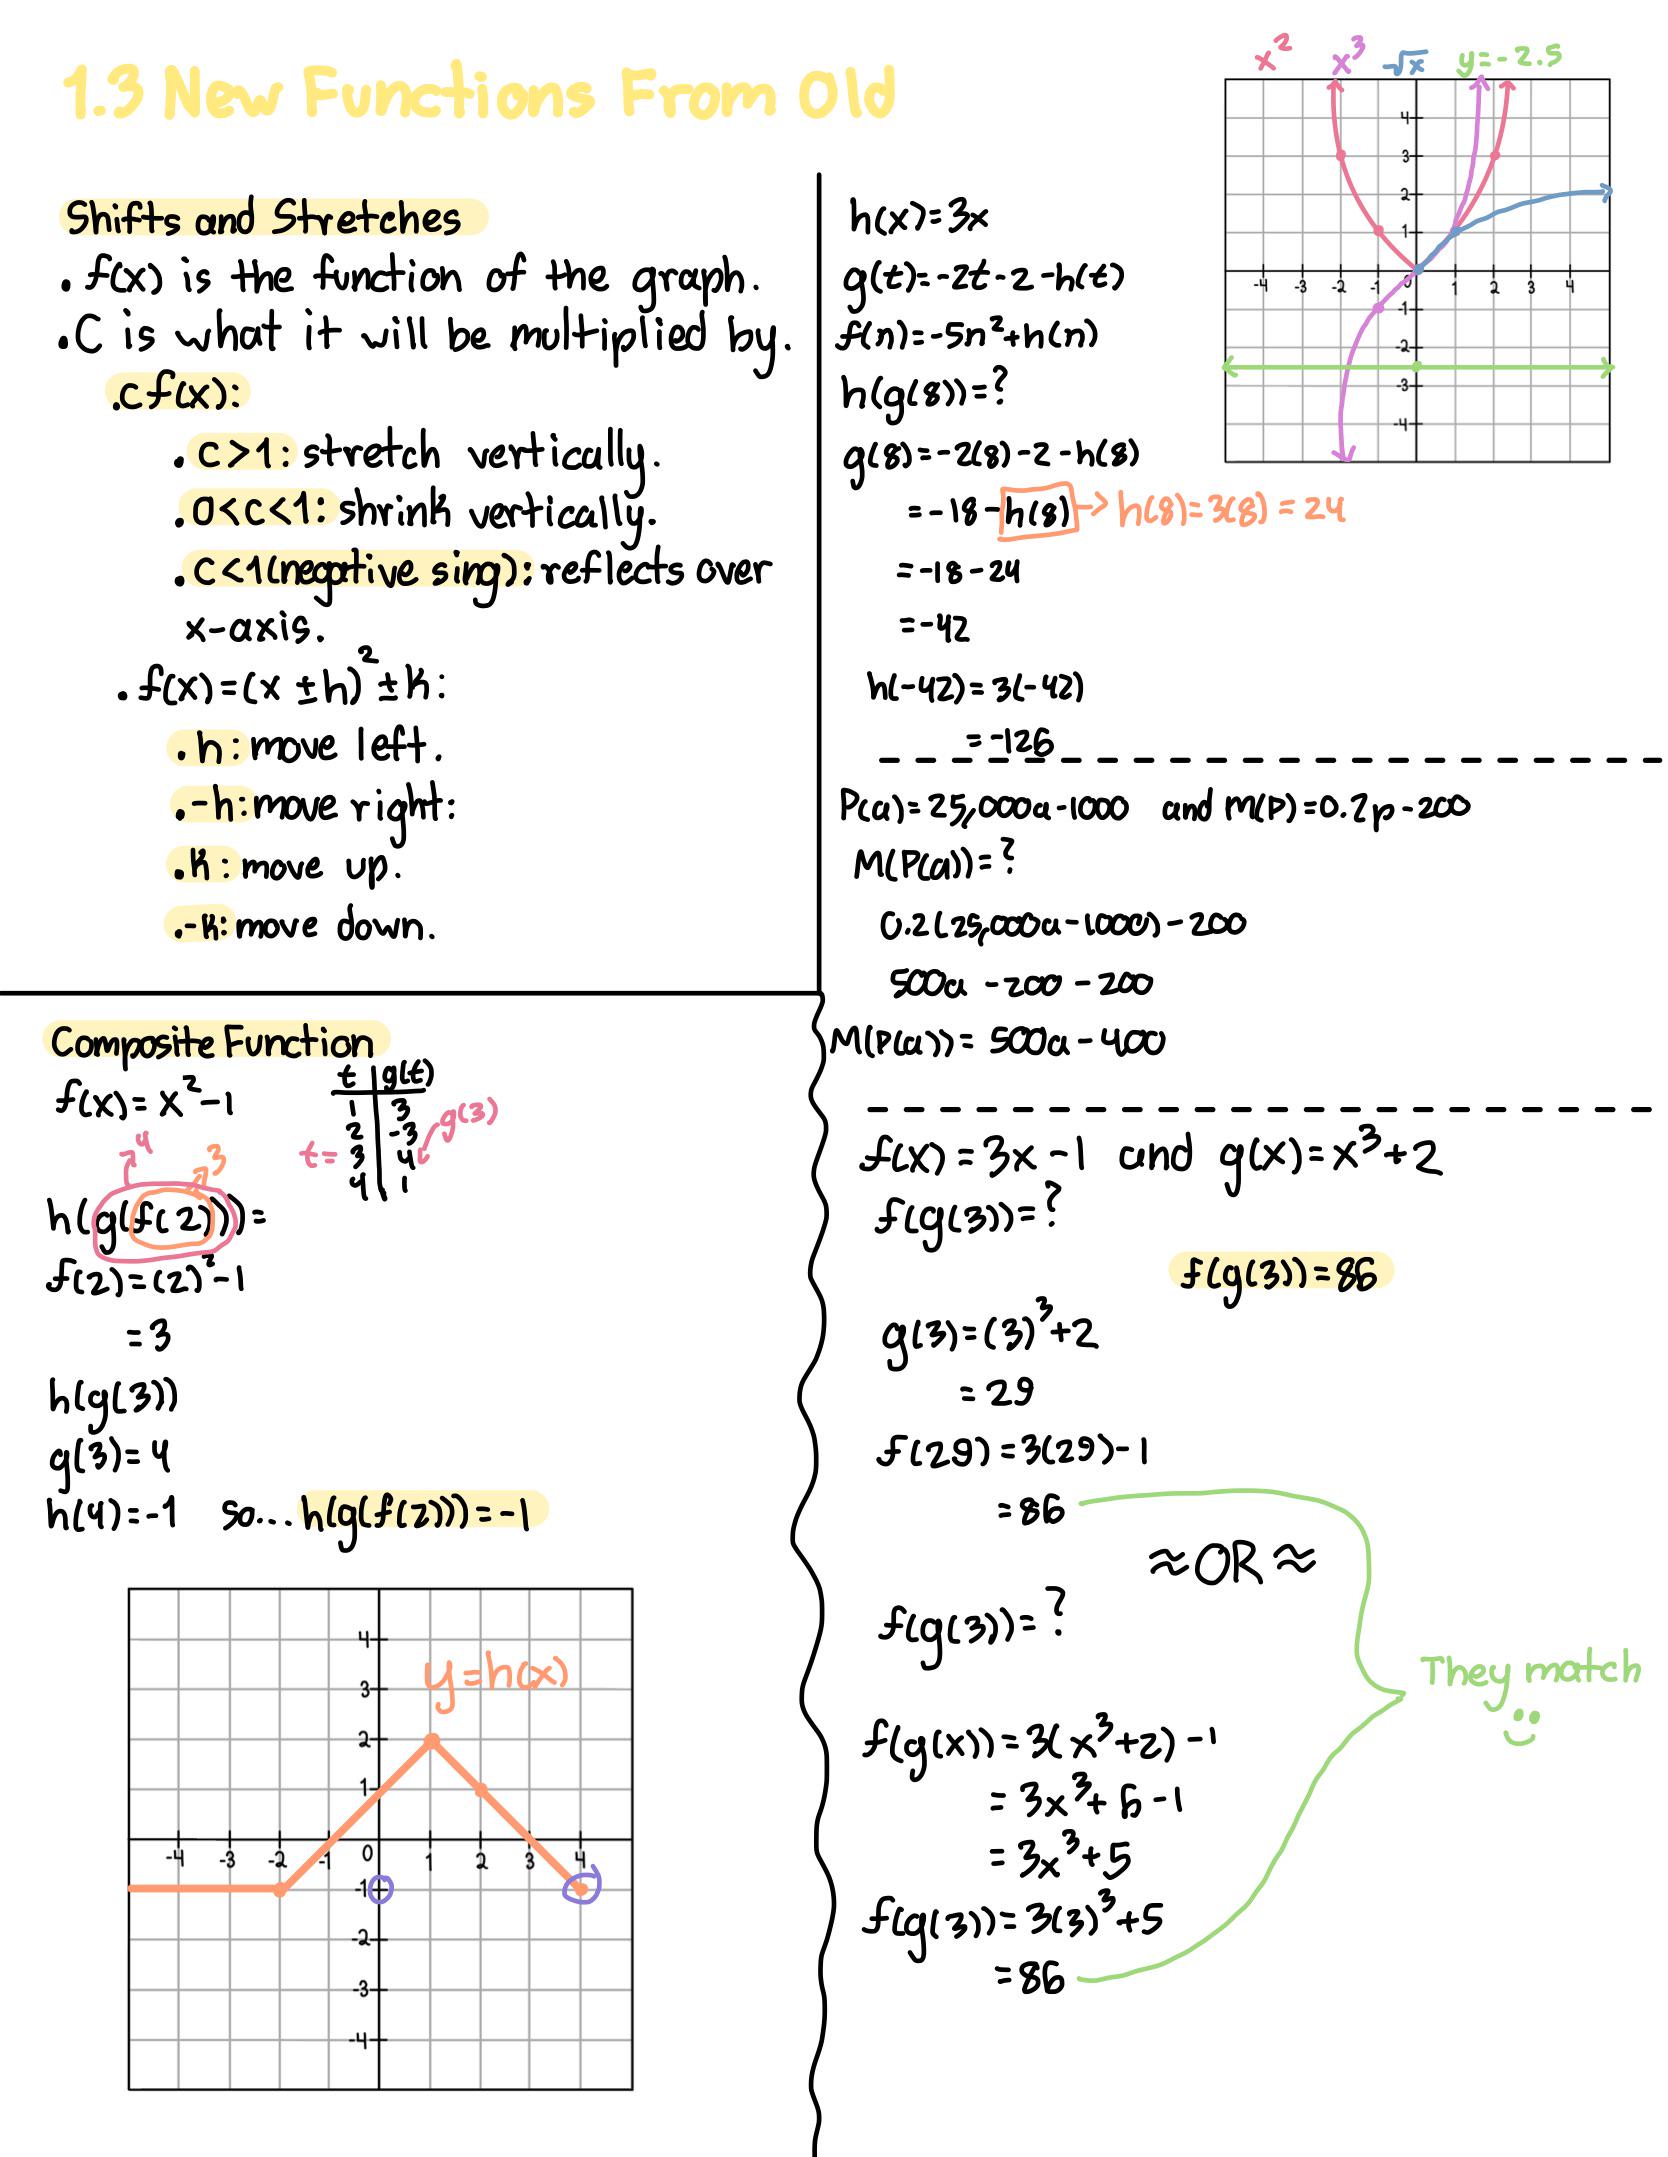 1.3 New Functions From Old
x² x³ √x y=-2.5
4
3
2
1
-4 -3 -2 -1 0 1 2 3 4
-1
-2
-3
-4
Shifts and Stretches
. f(x) is the function of the graph.
. C is what it will be multiplied by.
. cf(x):
. c>1: stretch vertically.
. 0<c<1: shrink vertically.
. c<1(negative sing): reflects over
x-axis.
. f(x)=(x ±h)²±k:
. h: move left.
. -h: move right:
. k: move up.
. -k: move down.
h(x)=3x
g(t)=-2t-2-h(t)
f(n)=-5n²+h(n)
h(g(8))=?
g(8)=-2(8)-2-h(8)
=-18-h(8) → h(8)=3(8)=24
=-18-24
=-42
h(-42)=3(-42)
=-126
P(a)=25,000a-1000 and M(P)=0.2p-200
M(P(a))=?
0.2(25,000a-1000)-200
500a -200-200
M(P(a))= 500a-400
Composite Function
f(x)=x²-1
t g(t)
1 3
2 -3
t= 3 4 g(3)
4 1
4 3
h(g(f(2)))=
f(2)=(2)²-1
=3
h(g(3))
g(3)=4
h(4)=-1 so... h(g(f(2)))=-1
y=h(x)
4
3
2
1
-4 -3 -2 -1 0 1 2 3 4
-1
-2
-3
-4
f(x)=3x-1 and g(x)=x³+2
f(g(3))=?
f(g(3))=86
g(3)=(3)³+2
=29
f(29)=3(29)-1
=86
≈OR≈
f(g(3))=?
They match
f(g(x))=3(x³+2)-1
=3x³+6-1
=3x³+5
f(g(3))=3(3)³+5
=86